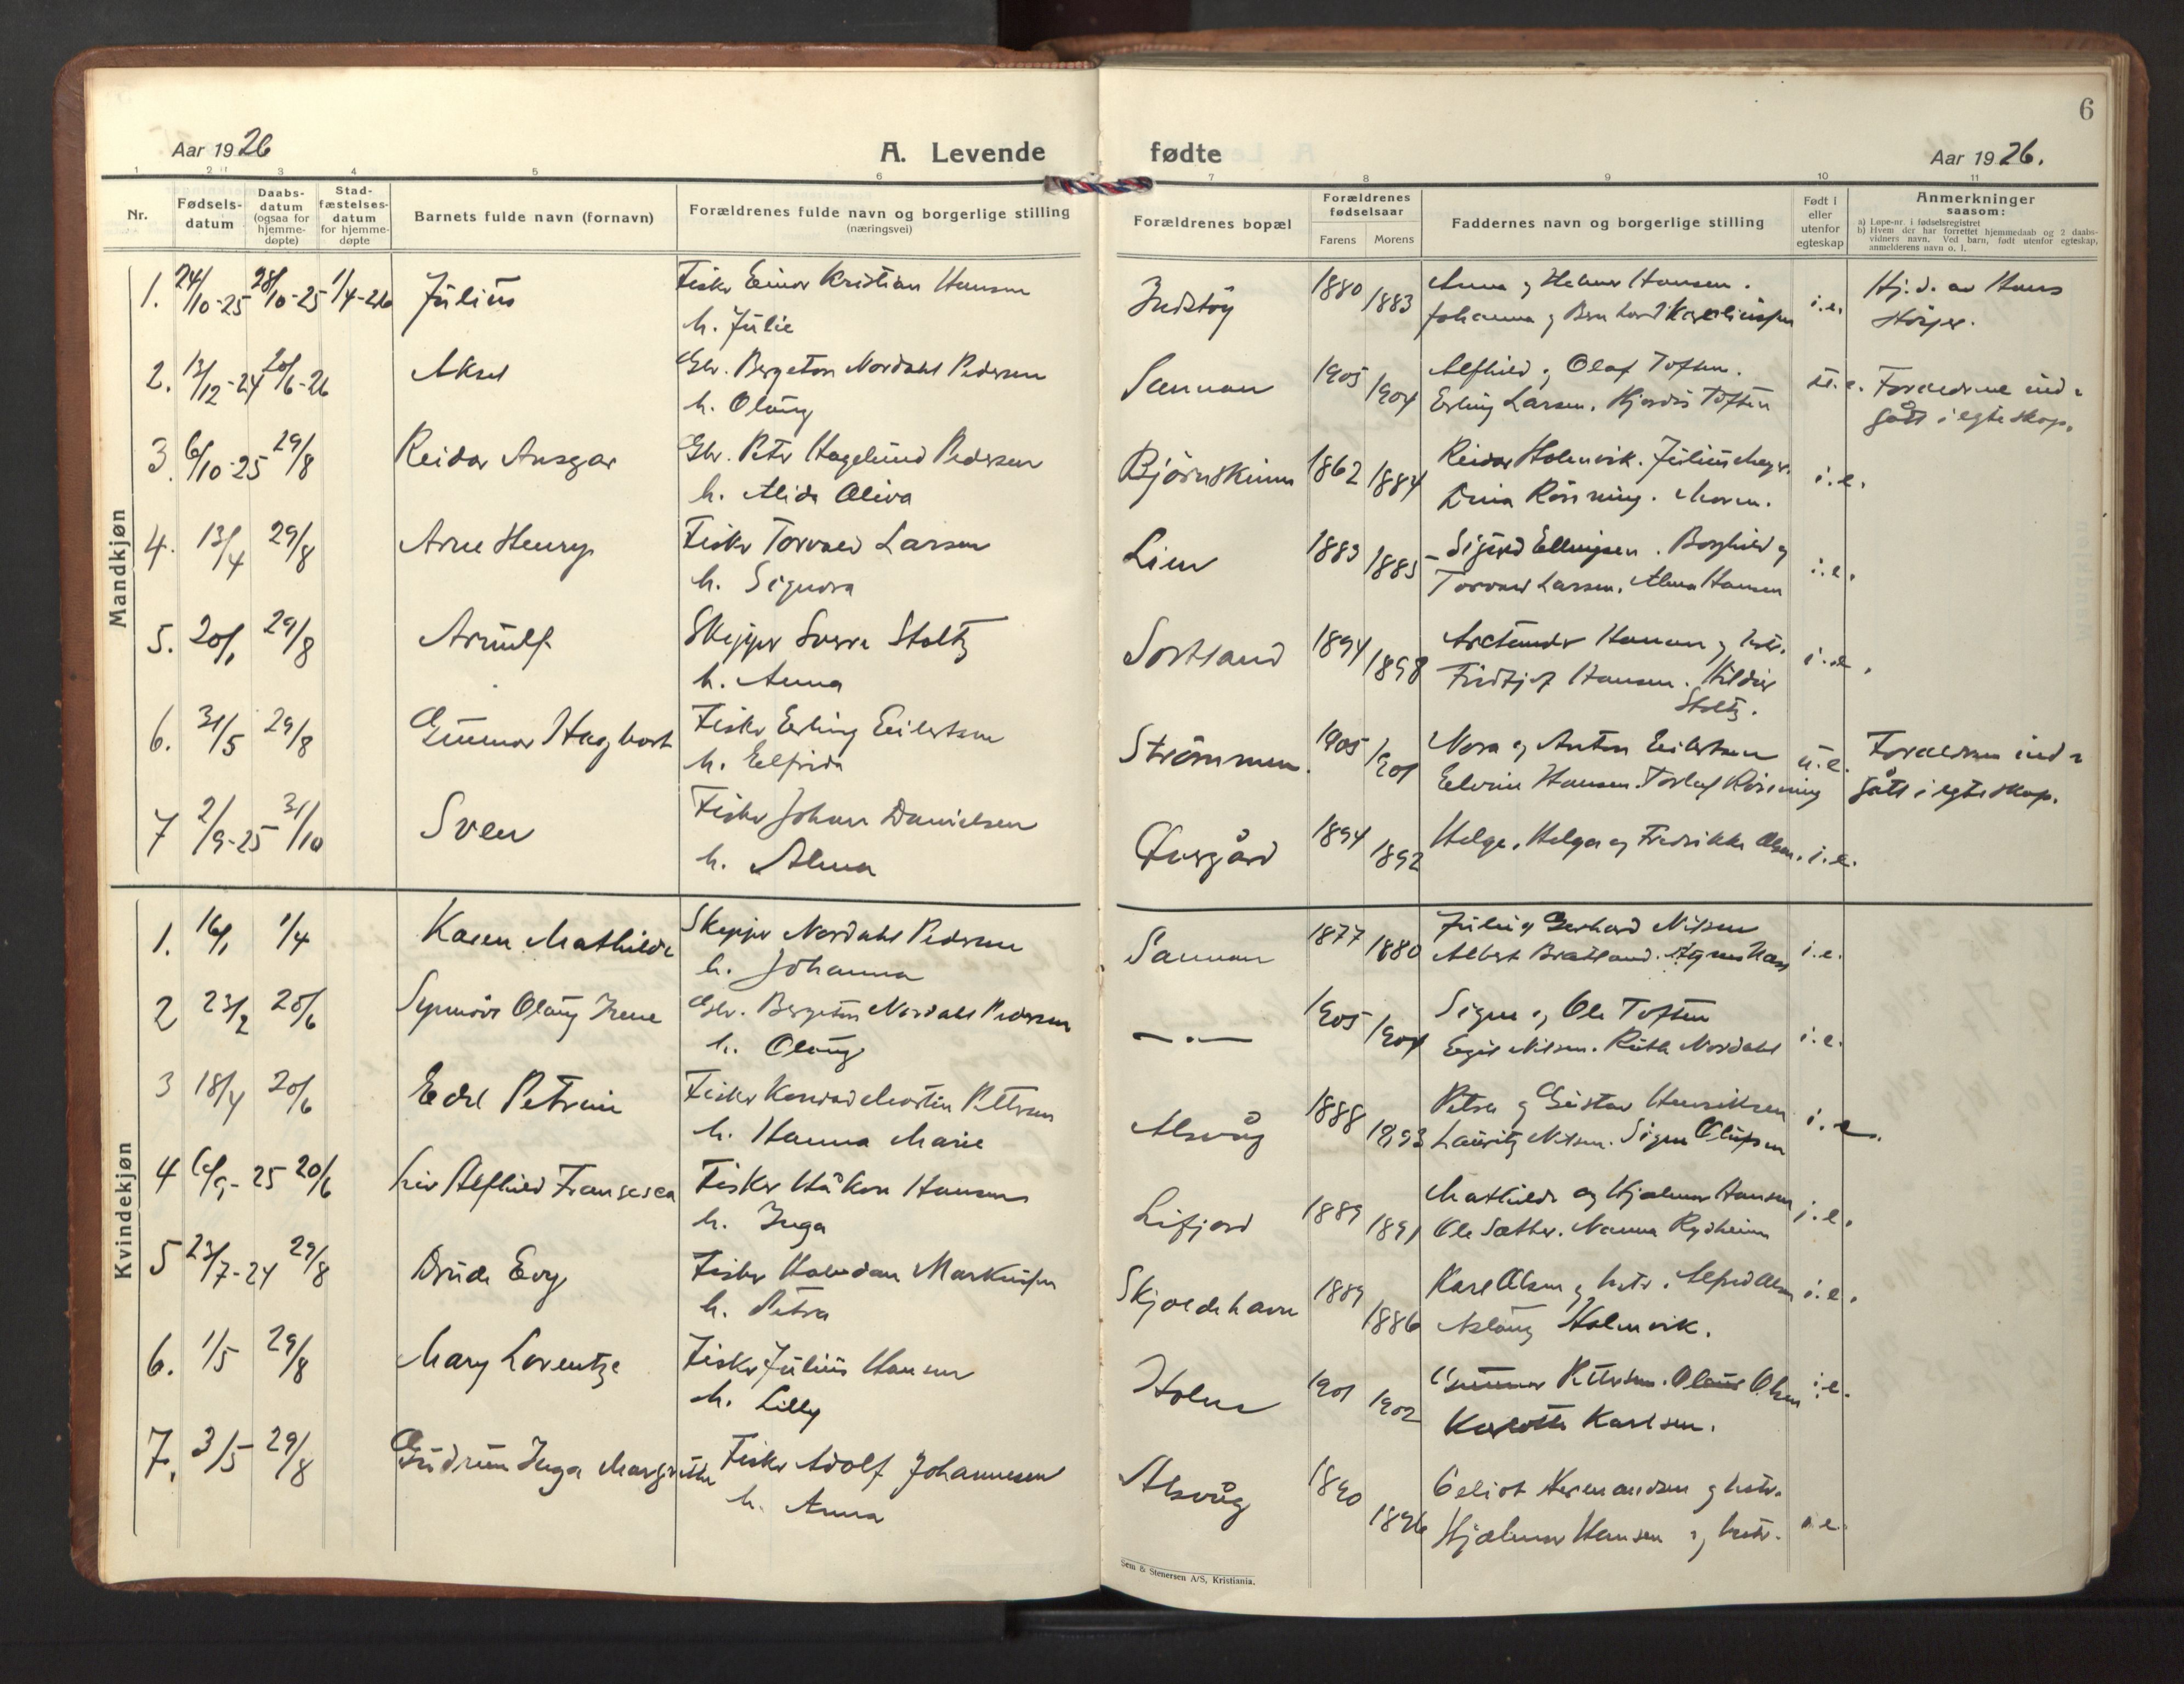 6
Aar 1926
A. Levende
fødte
Aar 1926.
1 2 3 4 5 6 7 8 9 10 11
Nr.
Fødsels-
datum
Daabs-
datum
(ogsaa for
hjemme-
døpte)
Stad-
fæstelses-
datum
for hjemme-
døpte
Barnets fulde navn (fornavn)
Forældrenes fulde navn og borgerlige stilling
(næringsvei)
Forældrenes bopæl
Forældrenes
fødselsaar
Farens Morens
Faddernes navn og borgerlige stilling
Født i
eller
utenfor
egteskap
Anmerkninger
saasom:
a) Løpe-nr. i fødselsregistret
b) Hvem der har forrettet hjemmedaab og 2 daabs-
vidners navn. Ved barn, født utenfor egteskap,
anmelderens navn o. l.
Mandkjøn
1. 24/10-25 28/10-25 1/4-26 Júlíus Fisker Einar Kristian Hansen 1880 Anna og Helmer Hansen. Hj.d. av Hans
h. Júlie 1883 Johanna og Bernhard i.e.
2. 13/12-24 20/6-26 Aksel Gbr. Bergeton Nordahl Pedersen Sannan 1905 Alfhild og Olaf Toften. ú.e. Foreldrene ind-
h. Olaúg 1904 Erling Larsen. Hjordis Toften gått i egteskap.
3. 6/10-25 29/8 Reidar Ansgar Gbr. Peter Hagelúnd Pedersen Björnskinn 1862 Reidar Holmvik. i.e.
h. Alida Oliva 1884 Moren.
4. 13/4 29/8 Arne Henry Fisker Torvald Larsen Lien 1883 Sigúrd Ellingsen. Borghild og i.e.
h. Signora 1885 Torvald Larsen. Alma Hansen
5. 20/1 29/8 Arnúlf Skipper Sverre Stoltz Sortland 1894 Hansen og hstr. i.e.
h. Anna 1898 Fridtjof Hansen. Hildúr
Stoltz.
6. 31/5 29/8 Gúnnar Hagbart Fisker Erling Eilertsen Strömmen. 1905 Nora og Anton Eilertsen ú.e. Foreldrene ind-
h. Elfrida 1901 Hansen. Torleif gått i egteskap.
7 2/9-25 31/10 Sven Fisker Johan Danielsen 1894 Helge, Helga og Fredrikke Olsen. i.e.
h. Alma 1892
Kvindekjøn
1. 16/1 1/4 Karen Mathilde Skipper Nordahl Pedersen Sannan 1877 Júlie og Gerhard Nilsen i.e.
h. Johanna 1880 Albert Bratland.
2 23/2 20/6 Synnöve Olaúg Irene Gbr. Bergeton Nordahl Pedersen — . — 1905 Signe og Ole Toften i.e.
h. Olaúg 1904 Egil Nilsen. Rúth Nordahl
3 18/4 20/6 Edel Petrine Fisker Konrad Martin Pettersen Alsvåg 1888 Petra og Gústav Henriksen i.e.
h. Hanna Marie 1893 Laúritz Nilsen. Signe Olúfsen
4 6/9-25 20/6 Liv Alfhild Fransesca Fisker Håkon Hansen Lifjord 1889 Mathilde og Hjalmar Hansen i.e.
h. Inga 1891 Ole Sæther. Nanna Rydheim
5 23/7-24 29/8 Drúde Evy Fisker Halvdan Markússen Skjoldehavn 1889 Karl Olsen og hstr. Alfred Olsen i.e.
h. Petra 1886 Aslaúg Holmvik.
6. 1/5 29/8 Mary Lorentze Fisker Júliús Hansen Holm 1901 Gúnnar Pettersen. Olaús Olsen i.e.
h. Lilly 1902 Karlsen.
7. 3/5 29/8 Gúdrún Inga Margrethe Fisker Adolf Johannesen Alsvåg 1890 Hermandsen og hstr. i.e.
h. Anna 1896 Hjalmar Hansen og hstr.
Sem & Stenersen A/S, Kristiania.